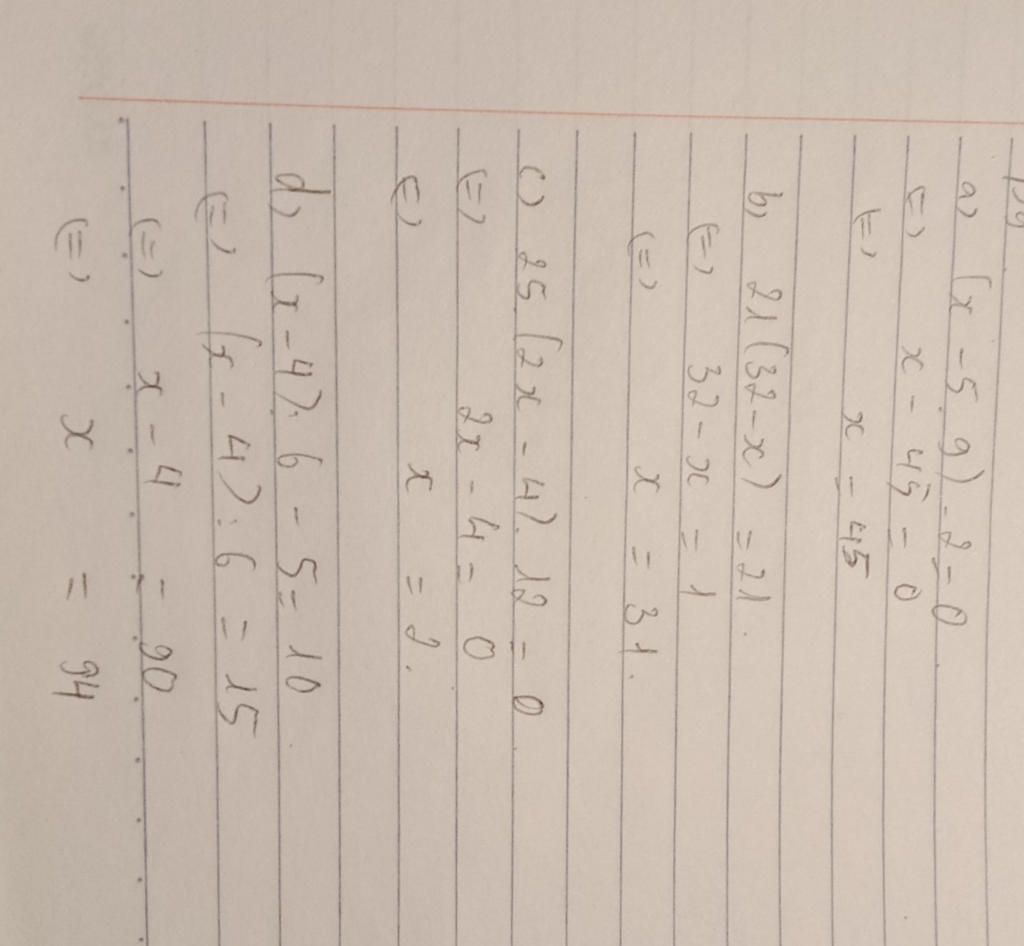 a) (x - 5.9).2=0
(=) x - 45 = 0
(=) x = 45
b) 21(32-x) = 21.
(=) 32-x = 1
(=) x = 31.
c) 25.(2x - 4).12 = 0
(=) 2x - 4 = 0
(=) x = 2.
d) (x-4): 6 - 5 = 10
(=) (x - 4): 6 = 15
(=) x - 4 = 90
(=) x = 94